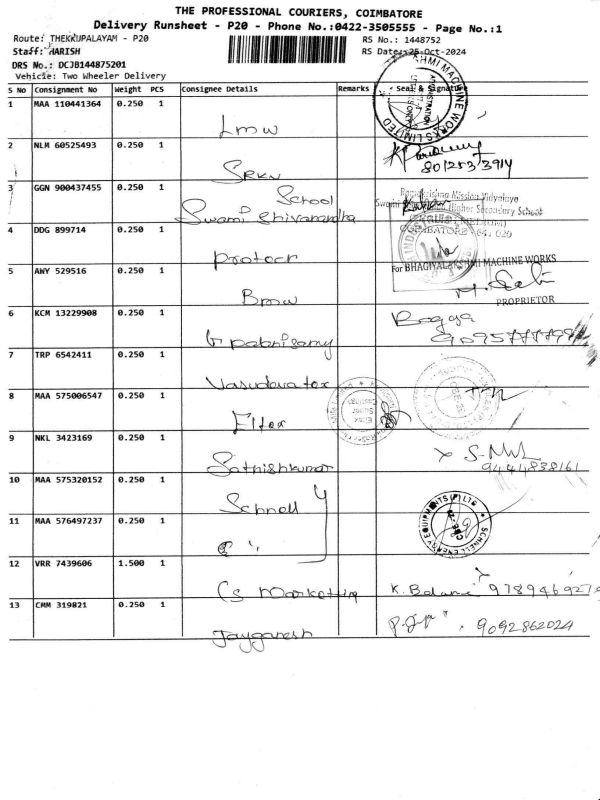 THE PROFESSIONAL COURIERS, COIMBATORE
Delivery Runsheet - P20 - Phone No.:0422-3505555 - Page No.:1
Route: THEKKUPALAYAM - P20
RS No.: 1448752
Staff: HARISH
RS Date: 25-Oct-2024
DRS No.: DCJB144875201
Vehicle: Two Wheeler Delivery
S No Consignment No Weight PCS Consignee Details Remarks Seal & Signature
1 MAA 110441364 0.250 1 Lmw
2 NLM 60525493 0.250 1 SRKV
8012533914
3 GGN 900437455 0.250 1 School
Swami Shivanandha
Ramakrishna Mission Vidyalaya
Swami Higher Secondary School
COIMBATORE - 641 020
4 DDG 899714 0.250 1 Protocr
5 ANY 529516 0.250 1 Bmw
For BHAGYALAKSHMI MACHINE WORKS
PROPRIETOR
6 KCM 13229908 0.250 1 G Palanisamy
Bagya
7 TRP 6542411 0.250 1 Vasudeva tex
8 MAA 575006547 0.250 1 Eltex
9 NKL 3423169 0.250 1 Sathishkumar
9444838161
10 MAA 575320152 0.250 1 Schnell
11 MAA 576497237 0.250 1
SCHNELL ENERGY EQUIPMENTS (P) LTD
12 VRR 7439606 1.500 1 CS Marketing
K. Balami
13 CMM 319821 0.250 1 Jayganesh
9092862024